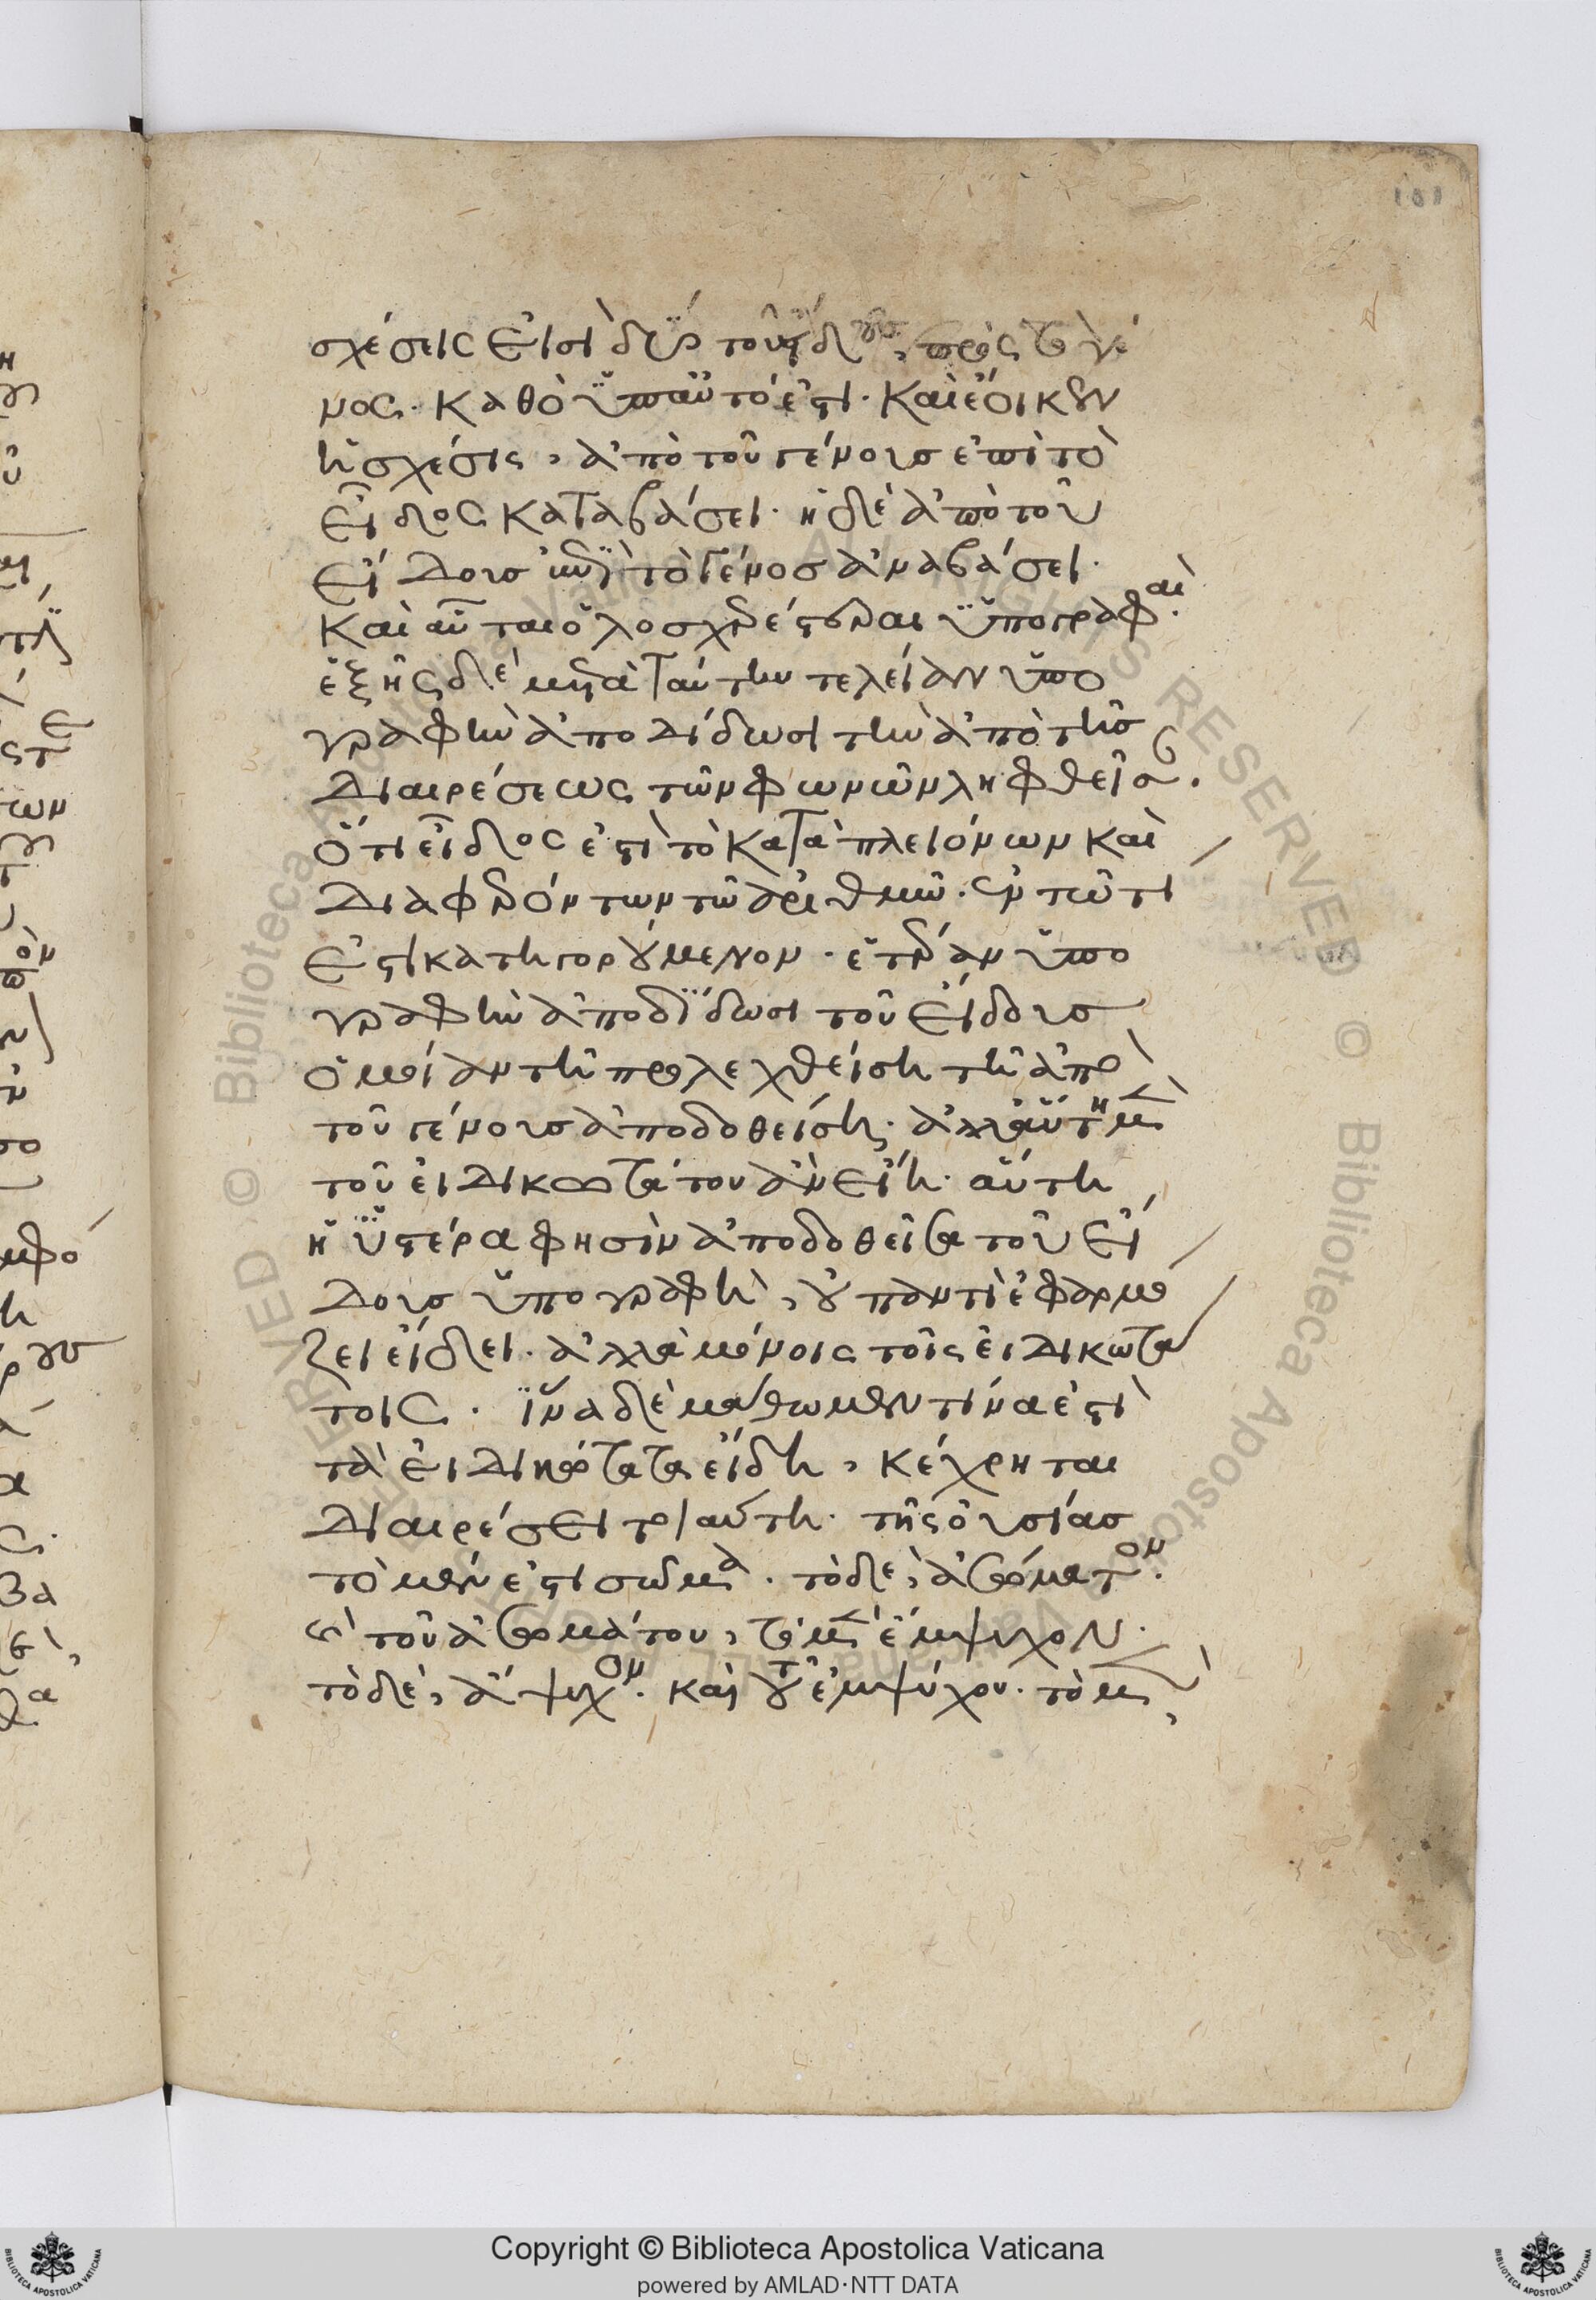 σχέσεις εἰσὶ δύο τοῦ εἴδους, πρὸς τὸ γέ
νος. καθὸ ὑπ' αὐτό ἐστι. καὶ ἔοικεν
ἡ σχέσις, ἀπὸ τοῦ γένους ἐπὶ τὸ
εἶδος καταβάσει. ἡ δὲ ἀπὸ τοῦ
εἴδους ἐπὶ τὸ γένος ἀναβάσει.
καὶ αὗται ὁλοσχερέστεραι ὑπογραφαί.
ἑξῆς δὲ μετὰ ταύτην τελείαν ὑπο
γραφὴν ἀποδίδωσι τὴν ἀπὸ τῆς
διαιρέσεως τῶν φωνῶν ληφθεῖσαν.
ὅτι εἶδος ἐστὶ τὸ κατὰ πλειόνων καὶ
διαφερόντων τῶ ἀριθμῶ. ἐν τῶ τί
ἐστι κατηγορούμενον. ἑτέραν ὑπο
γραφὴν ἀποδίδωσι τοῦ εἴδους
ὁμοίαν τῆ προλεχθείση τῆ ἀπὸ
τοῦ γένους ἀποδοθείσης. ἀλλ' αὕτη μὲν
τοῦ εἰδικωτάτου ἂν εἴη. αὕτη
ἡ ὑστέρα φησὶν ἀποδοθεῖσα τοῦ εἴ
δους ὑπογραφὴ, οὐ παντὶ ἐφαρμό
ζει εἴδει. ἀλλὰ μόνοις τοῖς εἰδικωτά
τοις. ἵνα δὲ μάθωμεν τίνα ἐστὶ
τὰ εἰδικώτατα εἴδη, κέχρηται
διαιρέσει τοιαύτη. τῆς οὐσίας
τὸ μέν ἐστι σῶμα. τὸ δὲ, ἀσώματον.
καὶ τοῦ ἀσωμάτου, τὸ μὲν ἔμψυχον.
τὸ δὲ, ἄψυχον. καὶ τοῦ ἐμψύχου. τὸ μὲν,
Copyright © Biblioteca Apostolica Vaticana
powered by AMLAD·NTT DATA